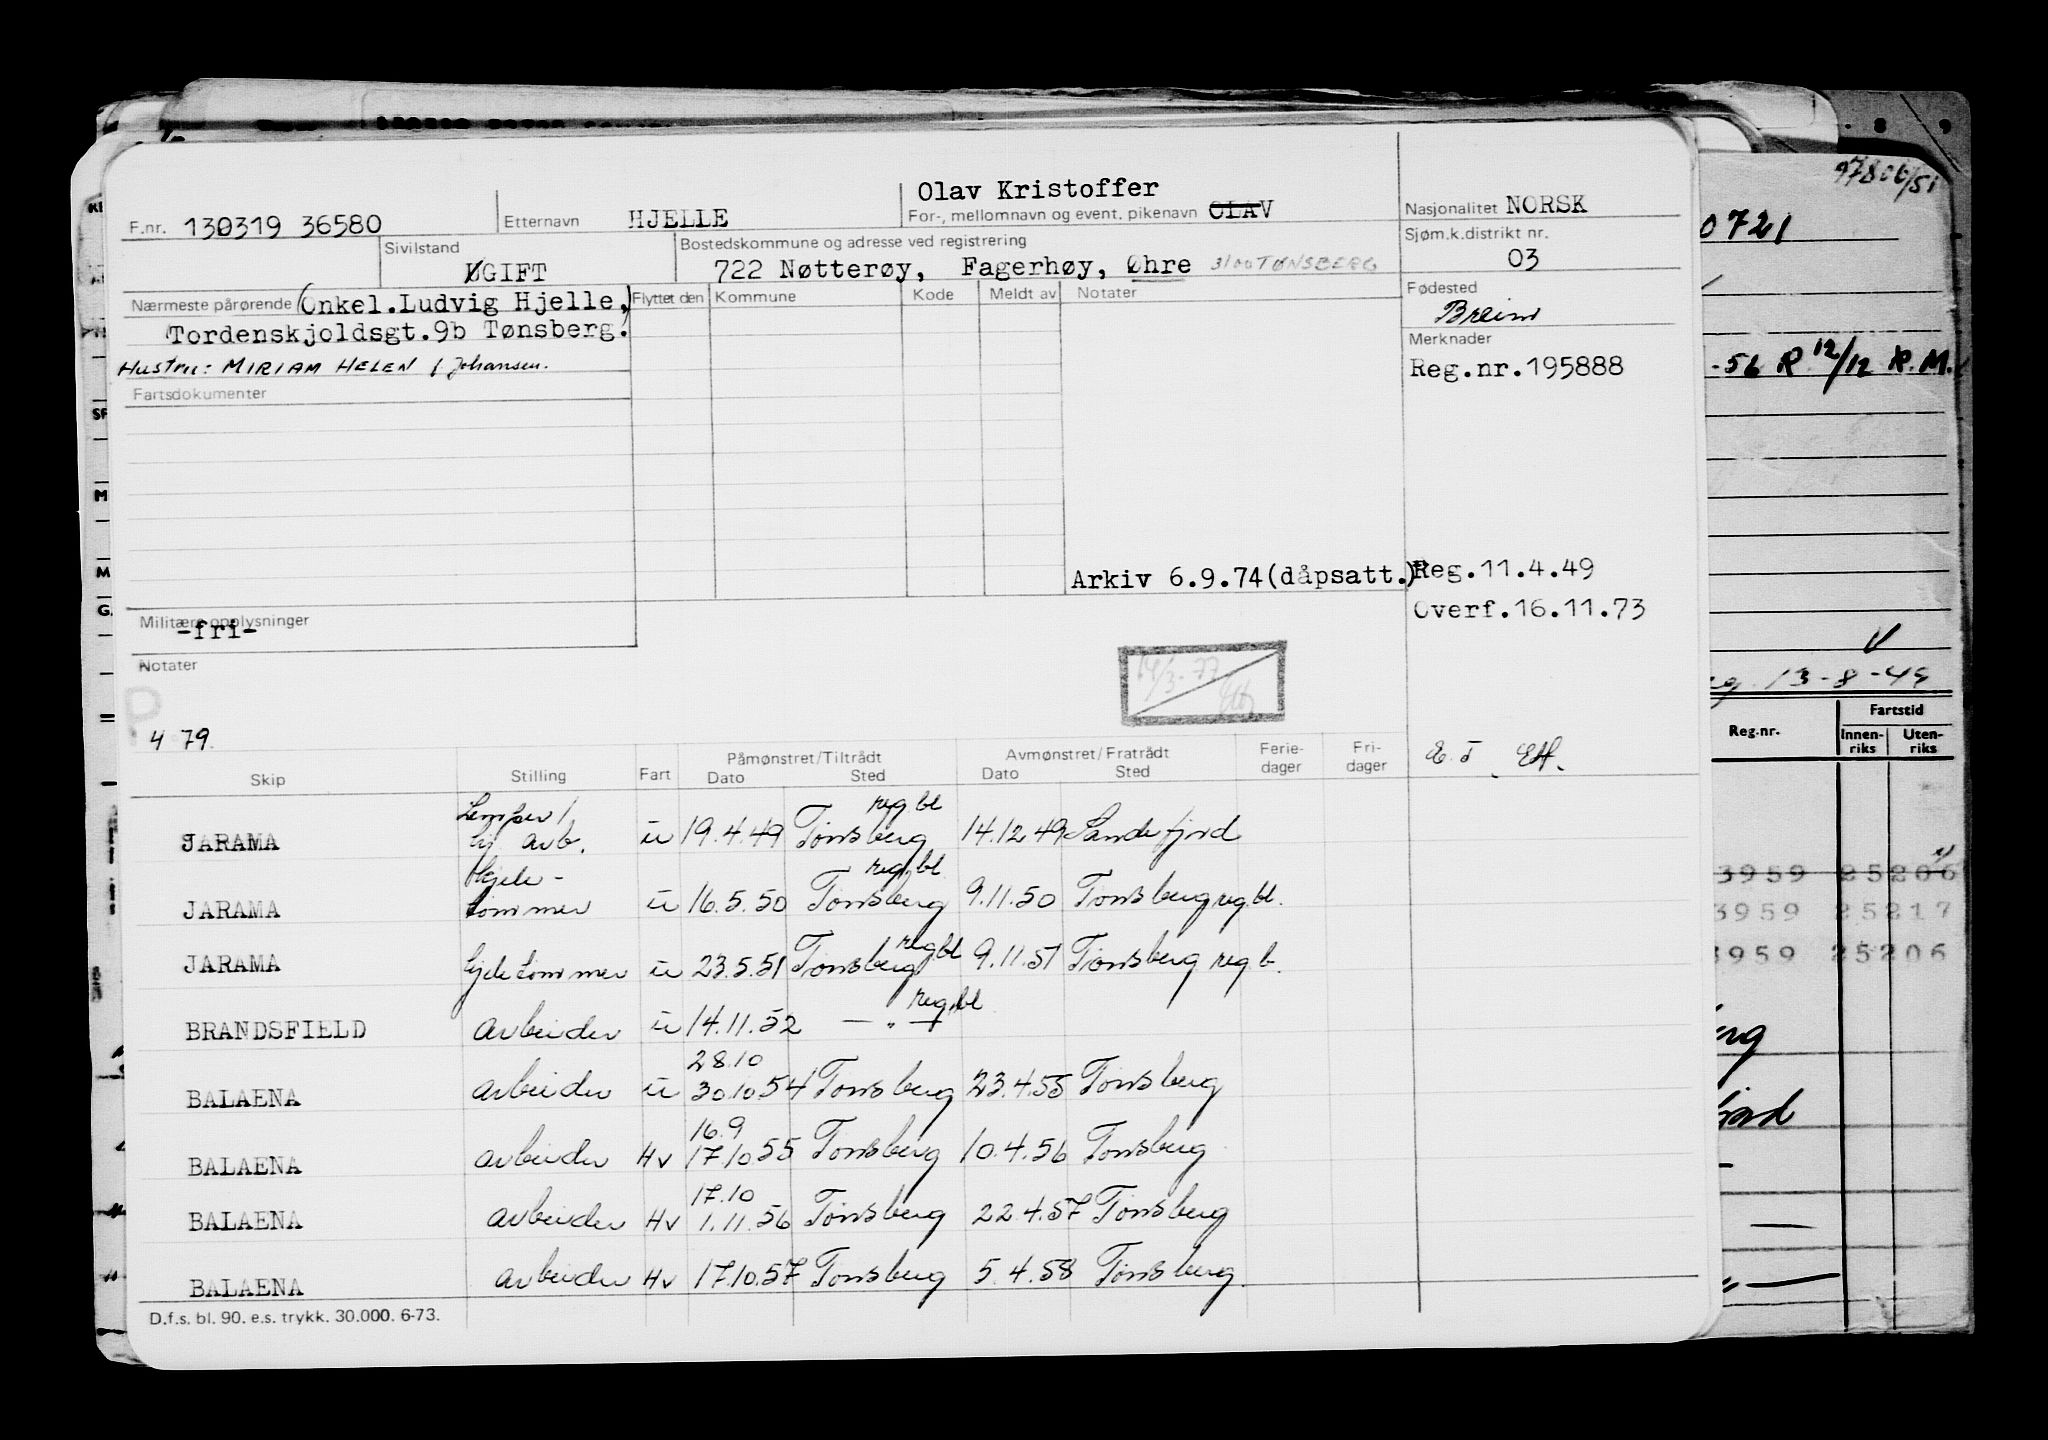 Olav Kristoffer
F.nr. 130319 36580 Etternavn HJELLE For-, mellomnavn og event. pikenavn OLAV Nasjonalitet NORSK
Sivilstand UGIFT Bostedskommune og adresse ved registrering Sjøm.k.distrikt nr.
722 Nøtterøy, Fagerhøy, Øhre 3100 TØNSBERG 03
Nærmeste pårørende (Onkel.Ludvig Hjelle, Flyttet den Kommune Kode Meldt av Notater Fødested
Tordenskjoldsgt.9b Tønsberg.) Breim
Hustru: MIRIAM HELEN f Johansen. Merknader
Reg.nr.195888
Fartsdokumenter
Arkiv 6.9.74(dåpsatt.) Reg.11.4.49
Overf.16.11.73
Militære opplysninger
-fri-
Notater
P
14/3-77
4 79.
Skip Stilling Fart Påmønstret/Tiltrådt Dato Sted Avmønstret/Fratrådt Dato Sted Ferie-dager Fri-dager E.T. EH.
JARAMA Lemper/ hj. arb. u 19.4.49 Tønsberg reg bl 14.12.49 Sandefjord
JARAMA Hjele-tømmer u 16.5.50 Tønsberg reg.bl 9.11.50 Tønsberg reg.bl.
JARAMA hjeletømmer u 23.5.51 Tønsberg reg bl 9.11.51 Tønsberg reg.b.
BRANDSFIELD arbeider u 14.11.52 — " — reg.bl
BALAENA arbeider u 28.10 30.10.54 Tønsberg 23.4.55 Tønsberg
BALAENA arbeider Hv 16.9 17.10.55 Tønsberg 10.4.56 Tønsberg
BALAENA arbeider Hv 17.10 1.11.56 Tønsberg 22.4.57 Tønsberg
BALAENA arbeider Hv 17.10.57 Tønsberg 5.4.58 Tønsberg.
D.f.s. bl. 90. e.s. trykk. 30.000. 6-73.
8 9
97806/51
0721
-56 R. 12/12 R.M.
13-8-49
Reg.nr. Fartstid
Innen-riks Uten-riks
3959 25206
3959 25217
3959 25206